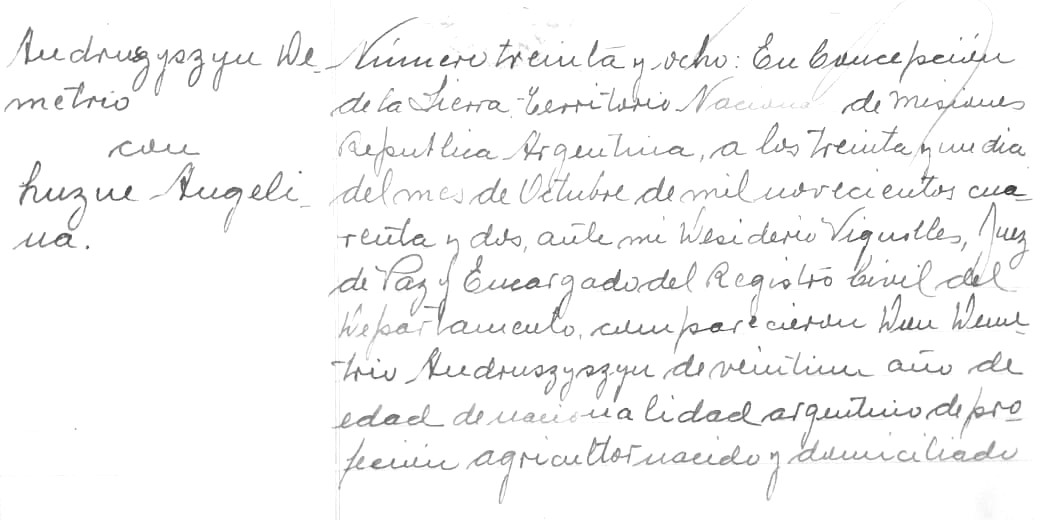 Andruszyszyn De-
metrio
con
Luzne Angeli-
na.
Número treinta y ocho: En Concepción
de la Sierra Territorio Nacional de Misiones
Republica Argentina, a los treinta y un dia
del mes de Octubre de mil novecientos cua-
renta y dos, ante mi Desiderio Vignolles, Juez
de Paz y Encargado del Registro Civil del
Departamento, comparecieron Don Deme-
trio Andruszyszyn de veintiun año de
edad de nacionalidad argentino de pro-
feción agricultor nacido y domiciliado